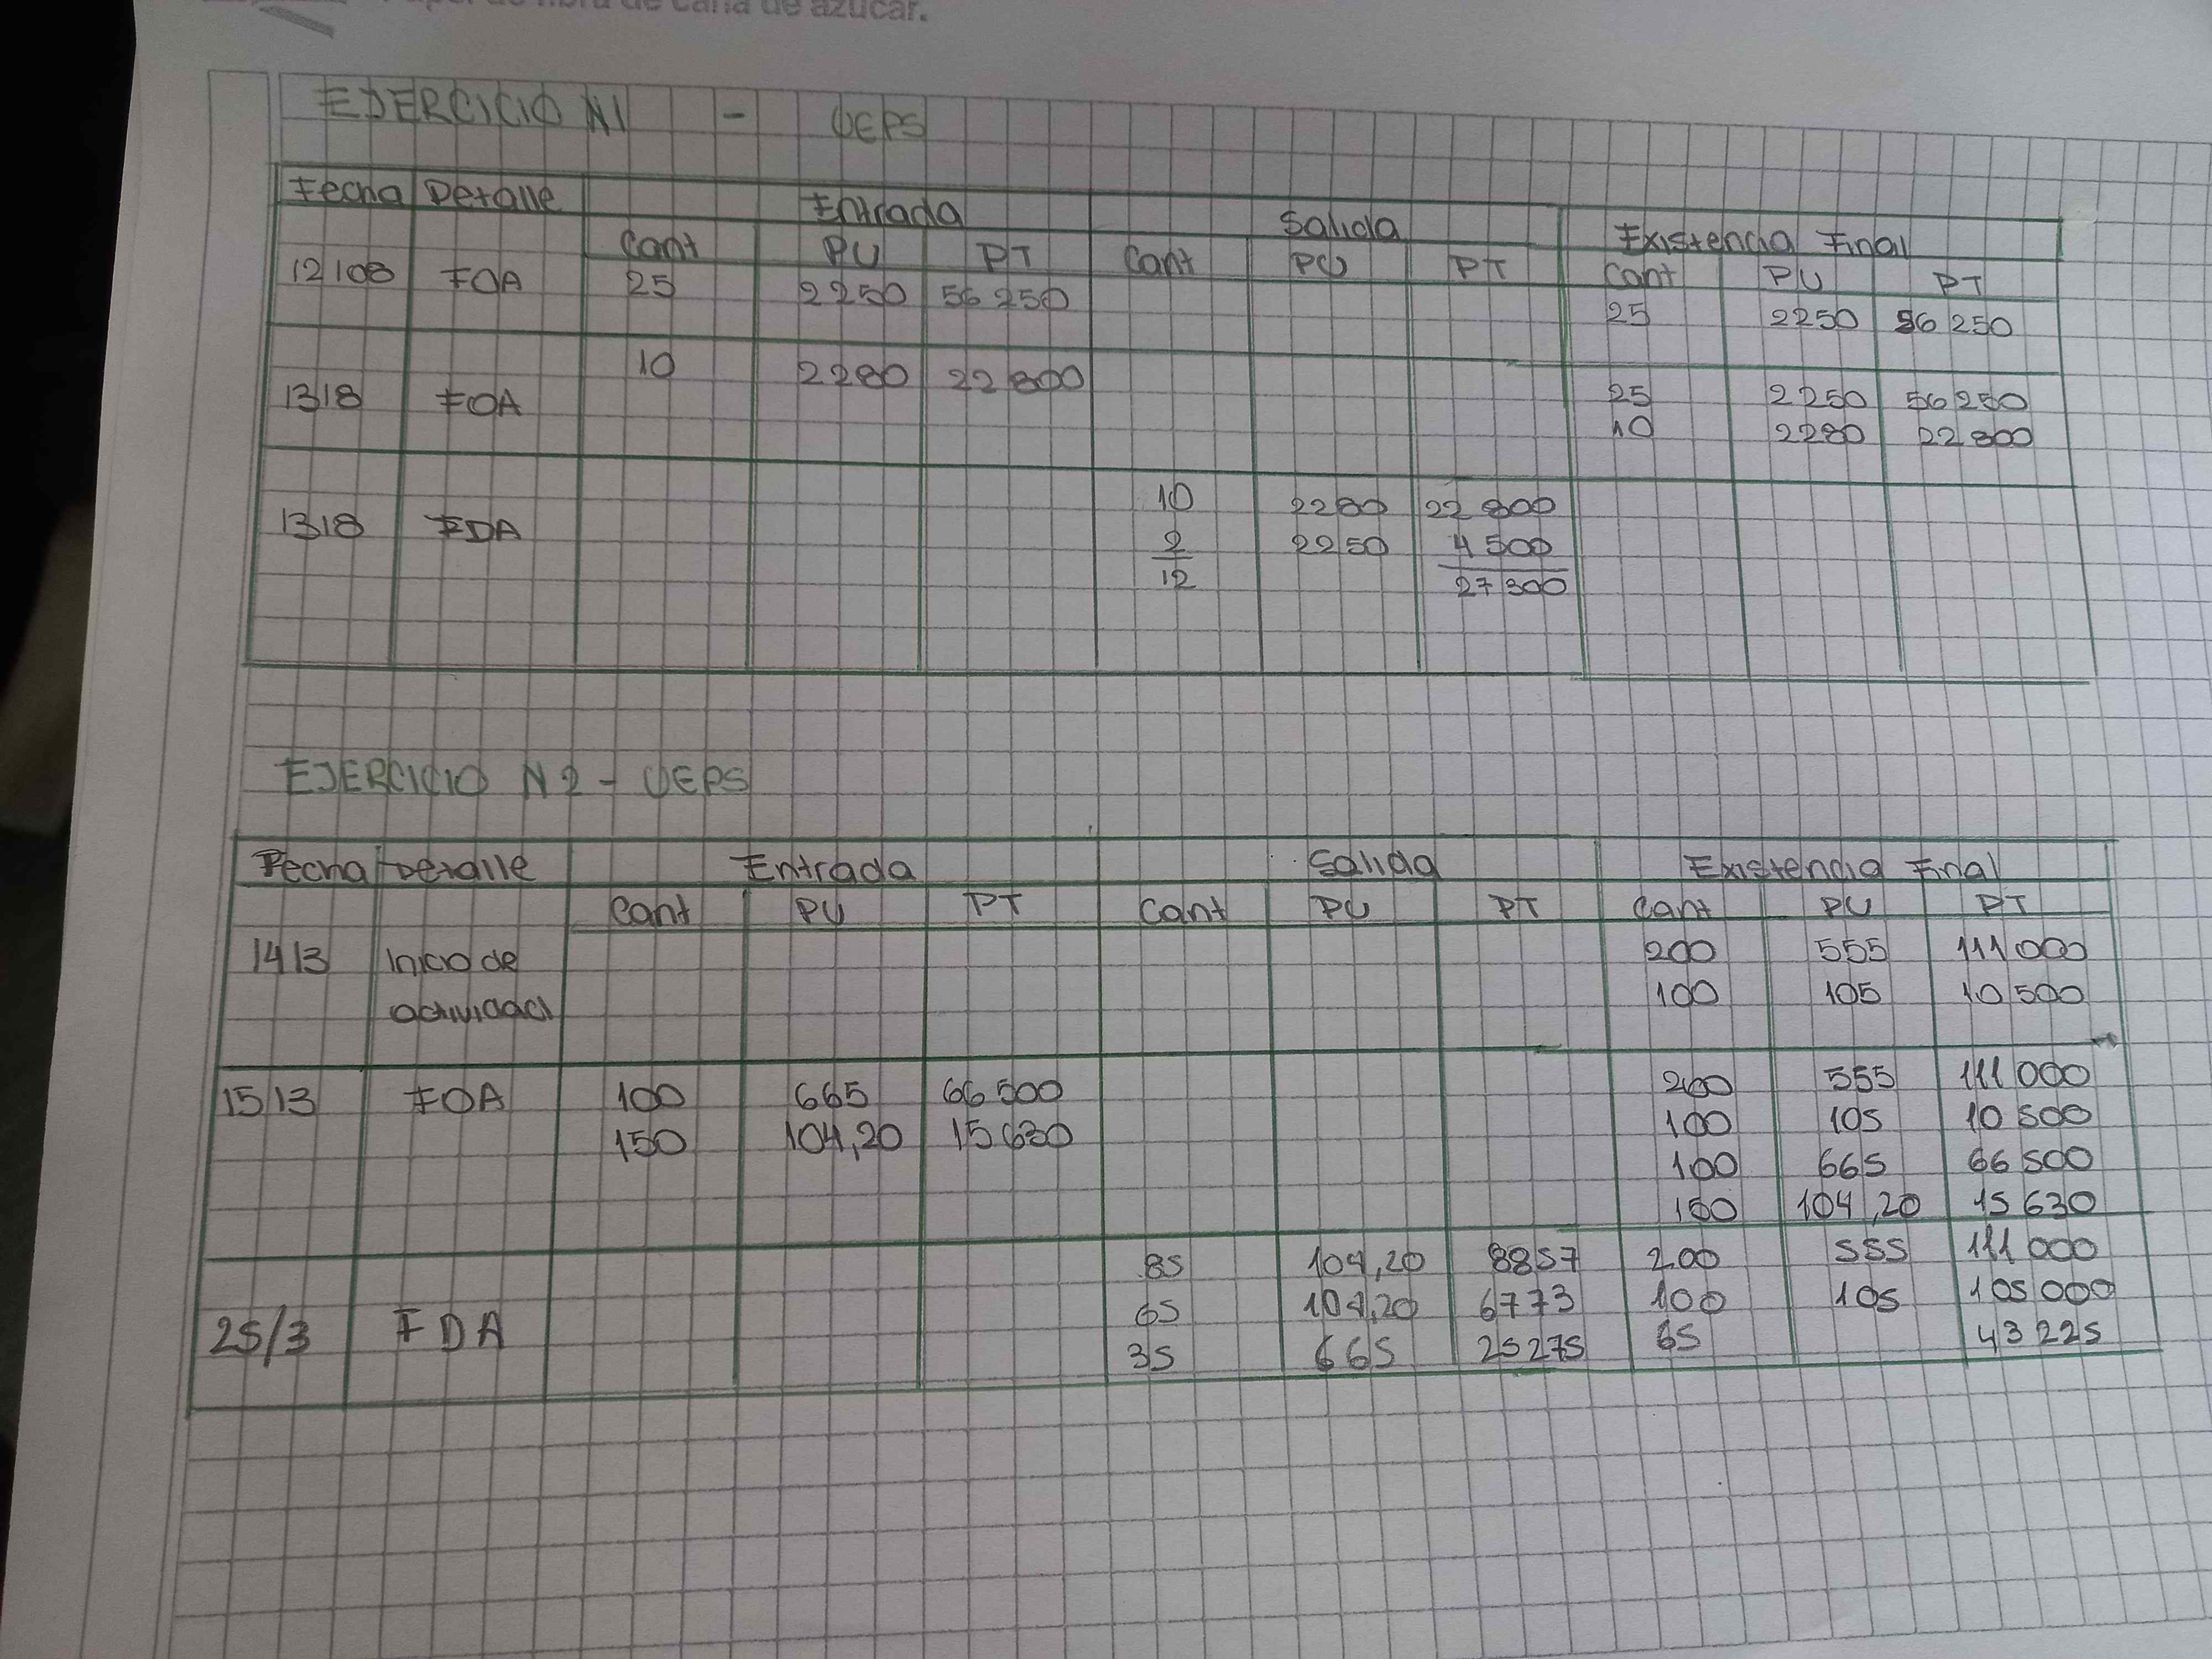 de caña de azúcar.
EJERCICIO N1 - UEPS
Fecha Detalle Entrada Salida Existencia Final
Cant PU PT Cant PU PT Cant PU PT
12/08 FOA 25 2250 56 250 25 2250 56 250
13/8 FOA 10 2280 22 800 25 2250 56 250
10 2280 22 800
13/8 FDA 10 2280 22 800
2 2250 4 500
12 27 300
EJERCICIO N2 - UEPS
Fecha Detalle Entrada Salida Existencia Final
Cant PU PT Cant PU PT Cant PU PT
14/3 Inicio de 200 555 111 000
actividad 100 105 10 500
15/3 FOA 100 665 66 500 200 555 111 000
150 104,20 15 630 100 105 10 500
100 665 66 500
150 104,20 15 630
85 104,20 8857 200 555 111 000
65 104,20 6773 100 105 105 000
25/3 FDA 35 665 25275 65 43 225